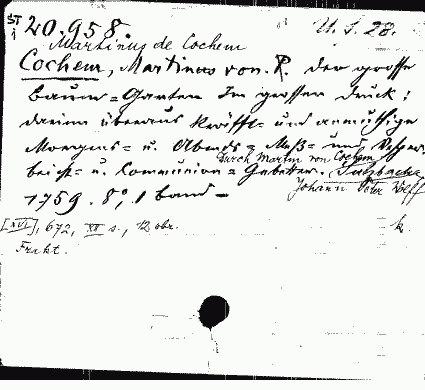 ST
1
20.958.
U. I. 28.
Martinus de Cochem
Cochem, Martinus von. P. Der grosse
Baum-Garten Im grossen Druck;
darein überaus kräfft- und anmuthige
Morgens- u. Abends- Meß- und Vesper
beicht- u. Communion-Gebetter. Sulzbach
durch Martin von Cochem
Johann Peter Wolff
1759. 8°, 1 Band -
[XVI], 672, XV s., 12 obr.
k
Frakt.